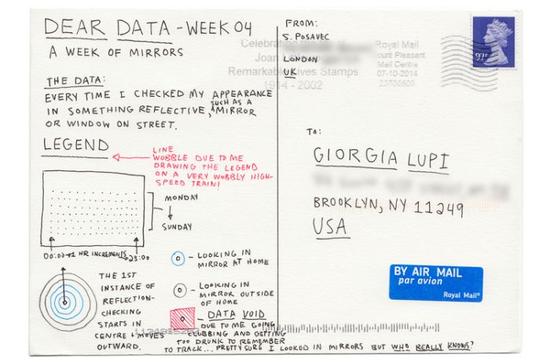 DEAR DATA - WEEK 04
A WEEK OF MIRRORS
THE DATA:
EVERY TIME I CHECKED MY APPEARANCE
IN SOMETHING REFLECTIVE, SUCH AS A MIRROR
OR WINDOW ON STREET.
LEGEND
LINE
WOBBLE DUE TO ME
DRAWING THE LEGEND
ON A VERY WOBBLY HIGH-
SPEED TRAIN!
MONDAY
SUNDAY
HR INCREMENTS
THE 1ST
INSTANCE OF
REFLECTION-
CHECKING
STARTS IN
CENTRE & MOVES
OUTWARD.
- LOOKING IN
MIRROR AT HOME
- LOOKING IN
MIRROR OUTSIDE
OF HOME
- DATA VOID
DUE TO ME GOING
CLUBBING AND GETTING
TOO DRUNK TO REMEMBER
TO TRACK... PRETTY SURE I LOOKED IN MIRRORS BUT WHO REALLY KNOWS?
FROM:
S. POSAVEC
LONDON
UK
Celebrating
Joan
Remarkable Lives Stamps
1914 - 2002
Royal Mail
Mount Pleasant
Mail Centre
07-10-2014
TO:
GIORGIA LUPI
BROOKLYN, NY 11249
USA
BY AIR MAIL
par avion
Royal Mail®